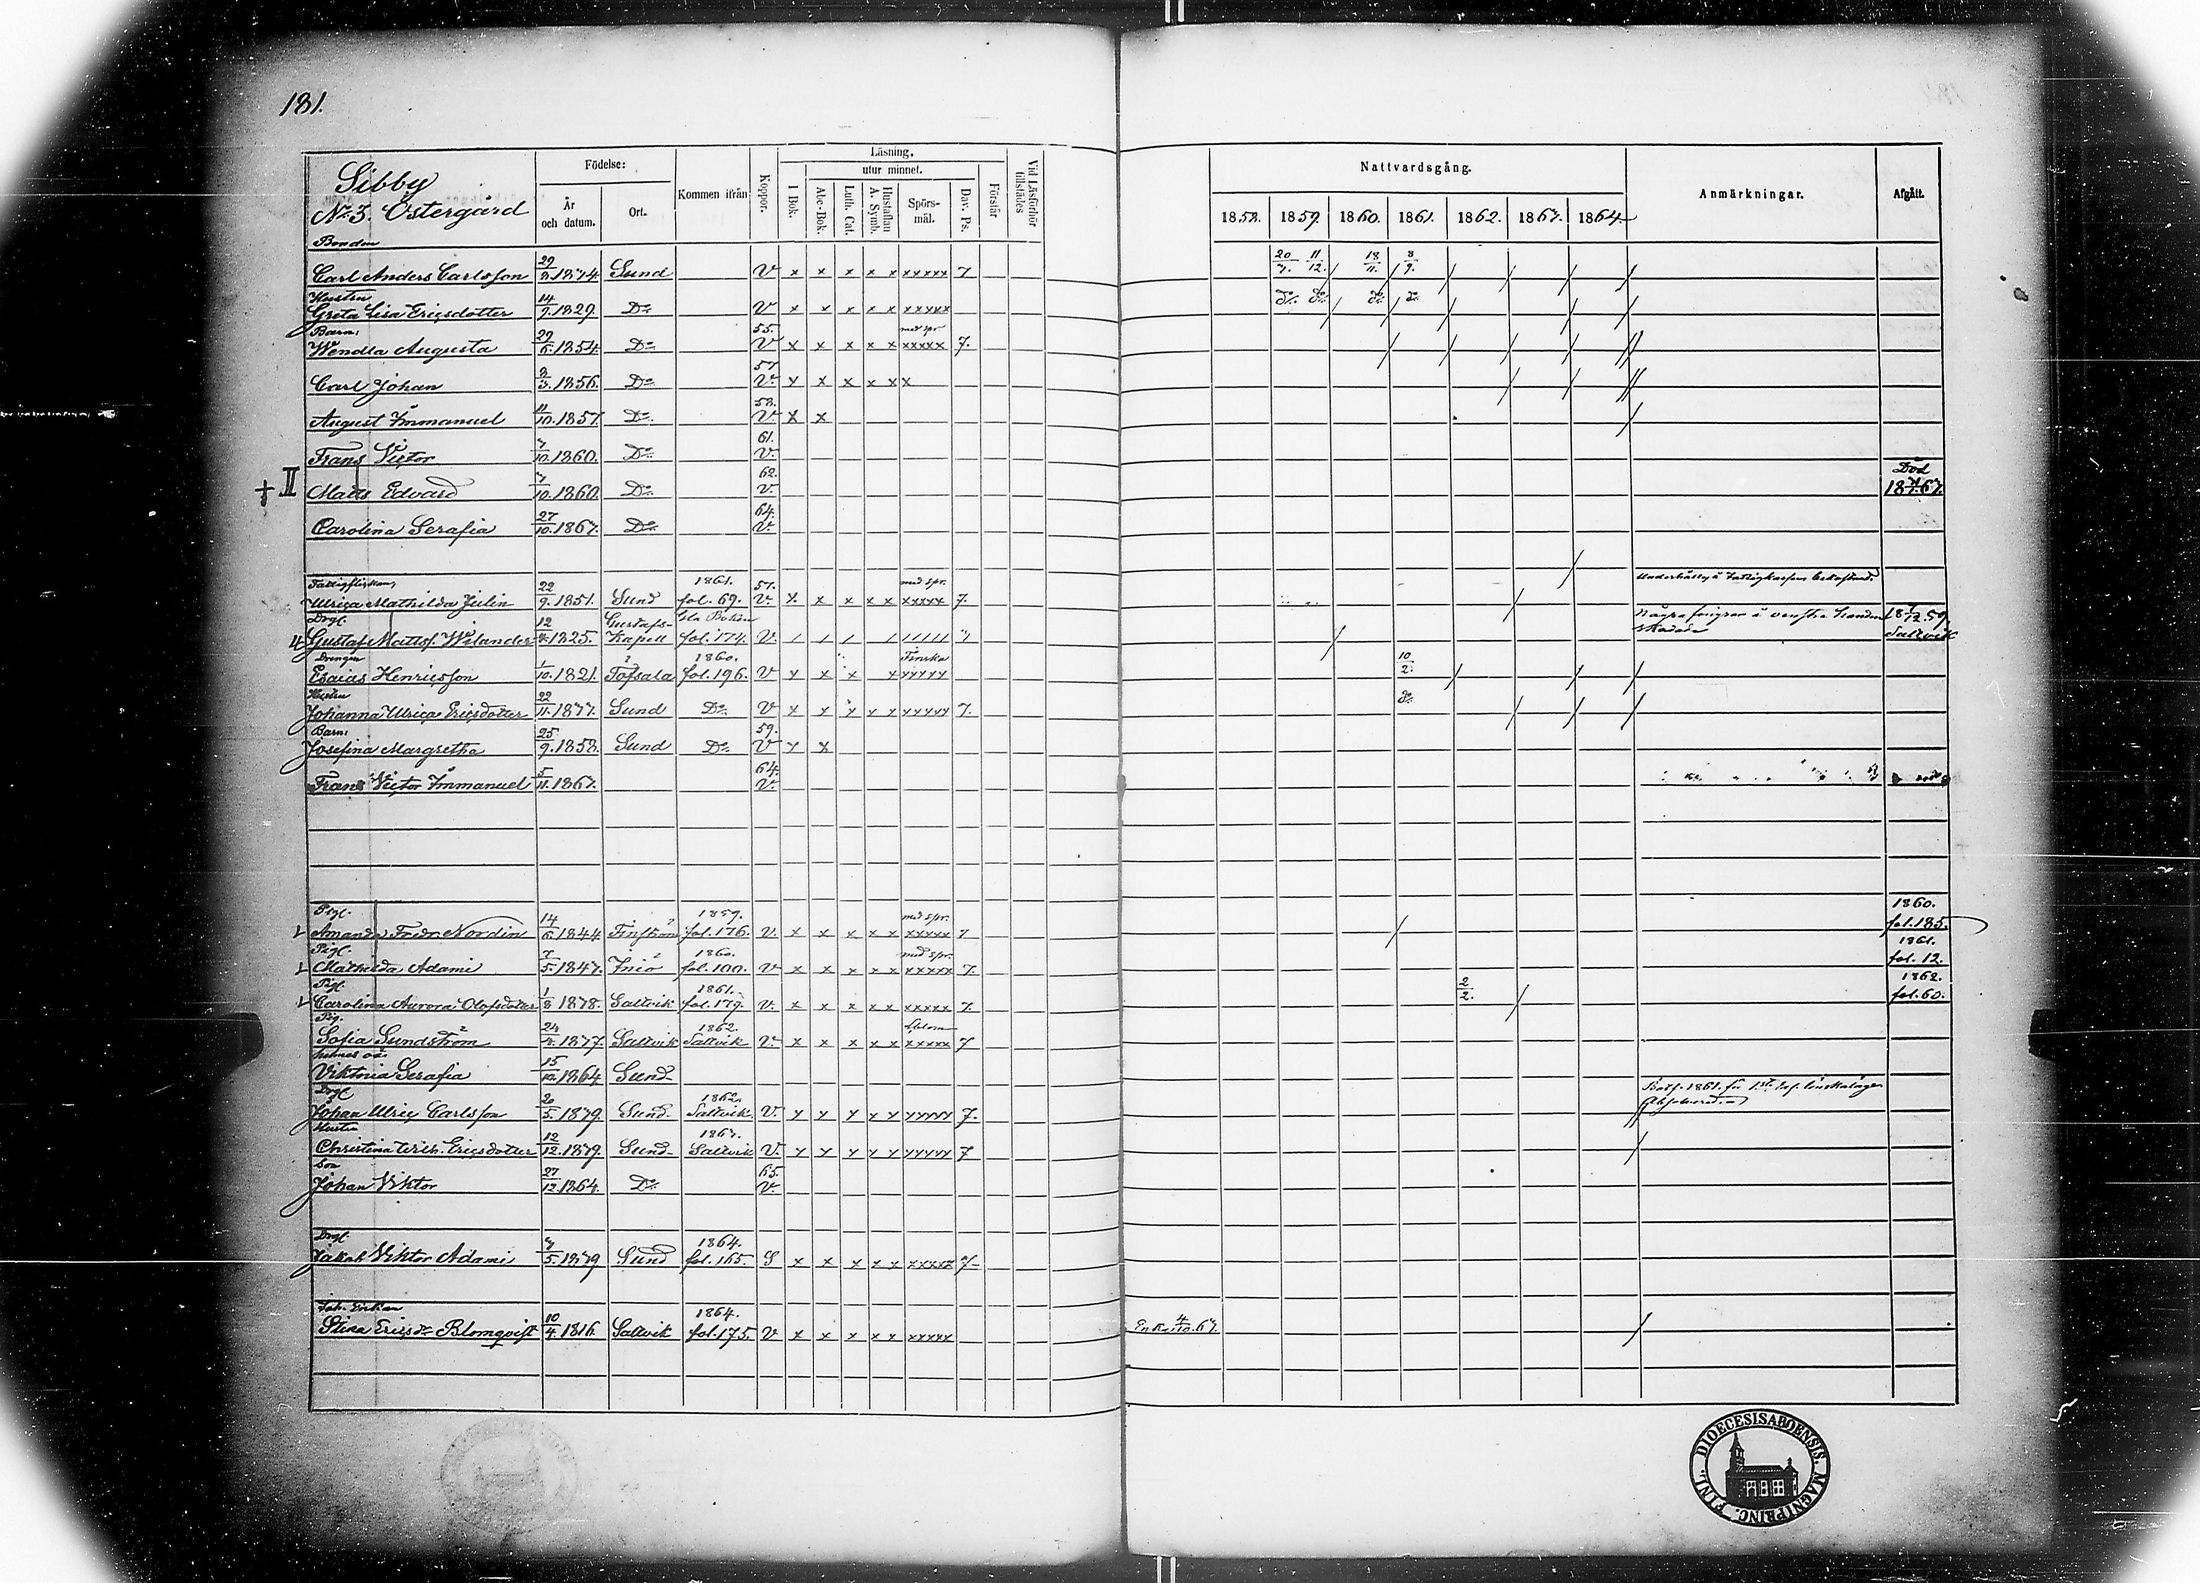 181.
Sibby
No 3. Östergård
Födelse:
År och datum.
Ort.
Kommen ifrån
Koppor.
Läsning,
utur minnet.
I Bok.
Abc-Bok.
Luth. Cat.
Hustaflan A. Symb.
Spörs-mål.
Dav. Ps.
Förstår
Vid Läsförhör tillstädes
Nattvardsgång.
1858. 1859. 1860. 1861. 1862. 1863. 1864.
Anmärkningar.
Afgått.
Bonden
Carl Anders Carlsson Sund V x x x x x xxxxx 7 20 11/12. 18/11. 8/9.
Hustru
Greta Lisa Ericsdotter 14/9. 1829. Do V x x x x x xxxxx do. do. do. do.
Barn: 55. med spr.
Wendla Augusta 29/6. 1854. Do V x x x x x xxxxx 7.
57
Carl Johan 1856. Do V. x x x x x x
58.
August Immanuel 11/10. 1857. Do V x x
61.
Frans Victor 3/10. 1860. Do V.
62. Död
+ II Matts Edvard 3/10. 1860. Do V. 18 63.
64.
Carolina Serafia 27/10. 1863. Do V.
1861. 57. med spr.
Ulrica Mathilda Julin 22/9. 1851. Sund fol. 69. V. x x x x x xxxxx 7.
Drgl. Gustafs- Gla Boken
Gustaf Mattsf. Wilander 12 1825. Kapell fol. 174. V. / / / / / ///// 18 /12. 59. Saltvik
Drengen 1860. Finska
Esaias Henricsson 1/10. 1821. Töfsala fol. 196. V x x x x xxxxx 10/2.
Hustru
Johanna Ulrica Ericsdotter 22/11. 1833. Sund Do V x x x x x xxxxx 7. do.
Barn: 59.
Josefina Margretha 25/9. 1858. Sund Do V x x
64.
Frans Victor Immanuel 5/11. 1863. V.
Pigl. 1859. med spr. 1860.
Amanda Fredr. Nordin 14/6. 1844. Finström fol. 176. V. x x x x x xxxxx 7 fol. 185.
Pigl. 1860. med spr. 1861.
Mathilda Adami 1843. Iniö fol. 100. V x x x x x xxxxx 7. fol. 12.
Pigl. 1861. 1862.
Carolina Aurora Olofsdotter 1/8 1838. Saltvik fol. 179. V. x x x x x xxxxx 7. 2/2. fol. 60.
Pig. 1862.
Sofia Sundström 24 1837. Saltvik Saltvik V. x x x x x xxxxx 7
Viktoria Serafia 15/10. 1864 Sund
Drgl 1862.
Johan Ulric Carlsson 20/5. 1839. Sund Saltvik V. x x x x x xxxxx 7.
Hustru 1863.
Christina Ericsdotter 12/12. 1839. Sund Saltvik V. x x x x x xxxxx 7
Son 65.
Johan Viktor 27/12. 1864. Do V.
Drgl. 1864.
Jakob Viktor Adami 3/5. 1839 Sund fol. 165. S x x x x x xxxxx 7
1864.
Stina Ericsdr Blomqvist 10/4. 1816. Saltvik fol. 175. V x x x x x xxxxx Enka 4/10. 63.
DIOECESIS ABOENSIS. MAGNI PRINC. FINL.